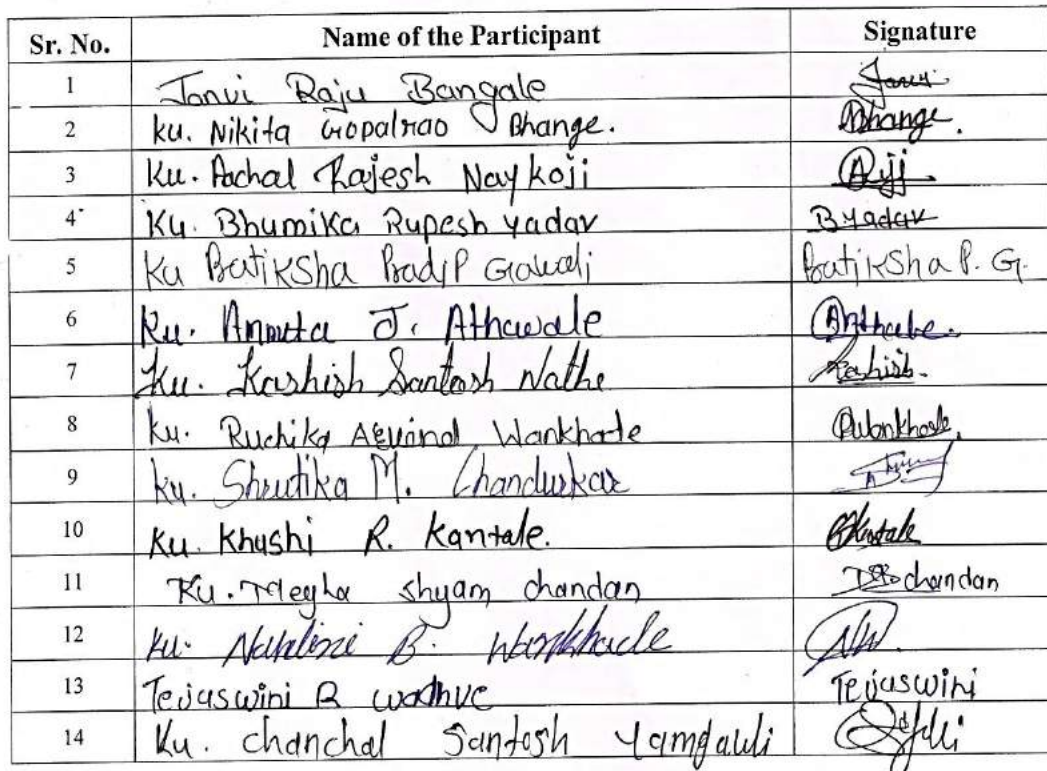 Sr. No. Name of the Participant Signature
1 Janvi Raju Bangale
2 Ku. Nikita Gopalrao Bhange. Bhange.
3 Ku. Aachal Rajesh Naykoji
4 Ku. Bhumika Rupesh yadav B.yadav
5 Ku Pratiksha Pradip Gawali Pratiksha P. G.
6 Ku. Amruta J. Athawale
7 Ku. Kashish Santosh Nathe Kashish.
8 Ku. Ruchika Arvind Wankhade RWankhade.
9 Ku. Shrutika M. Chandurkar
10 Ku. Khushi R. Kantale.
11 Ku. Megha Shyam chandan chandan
12 Ku. B. Wankhade
13 Tejaswini R wadhve Tejaswini
14 Ku. chanchal Santosh